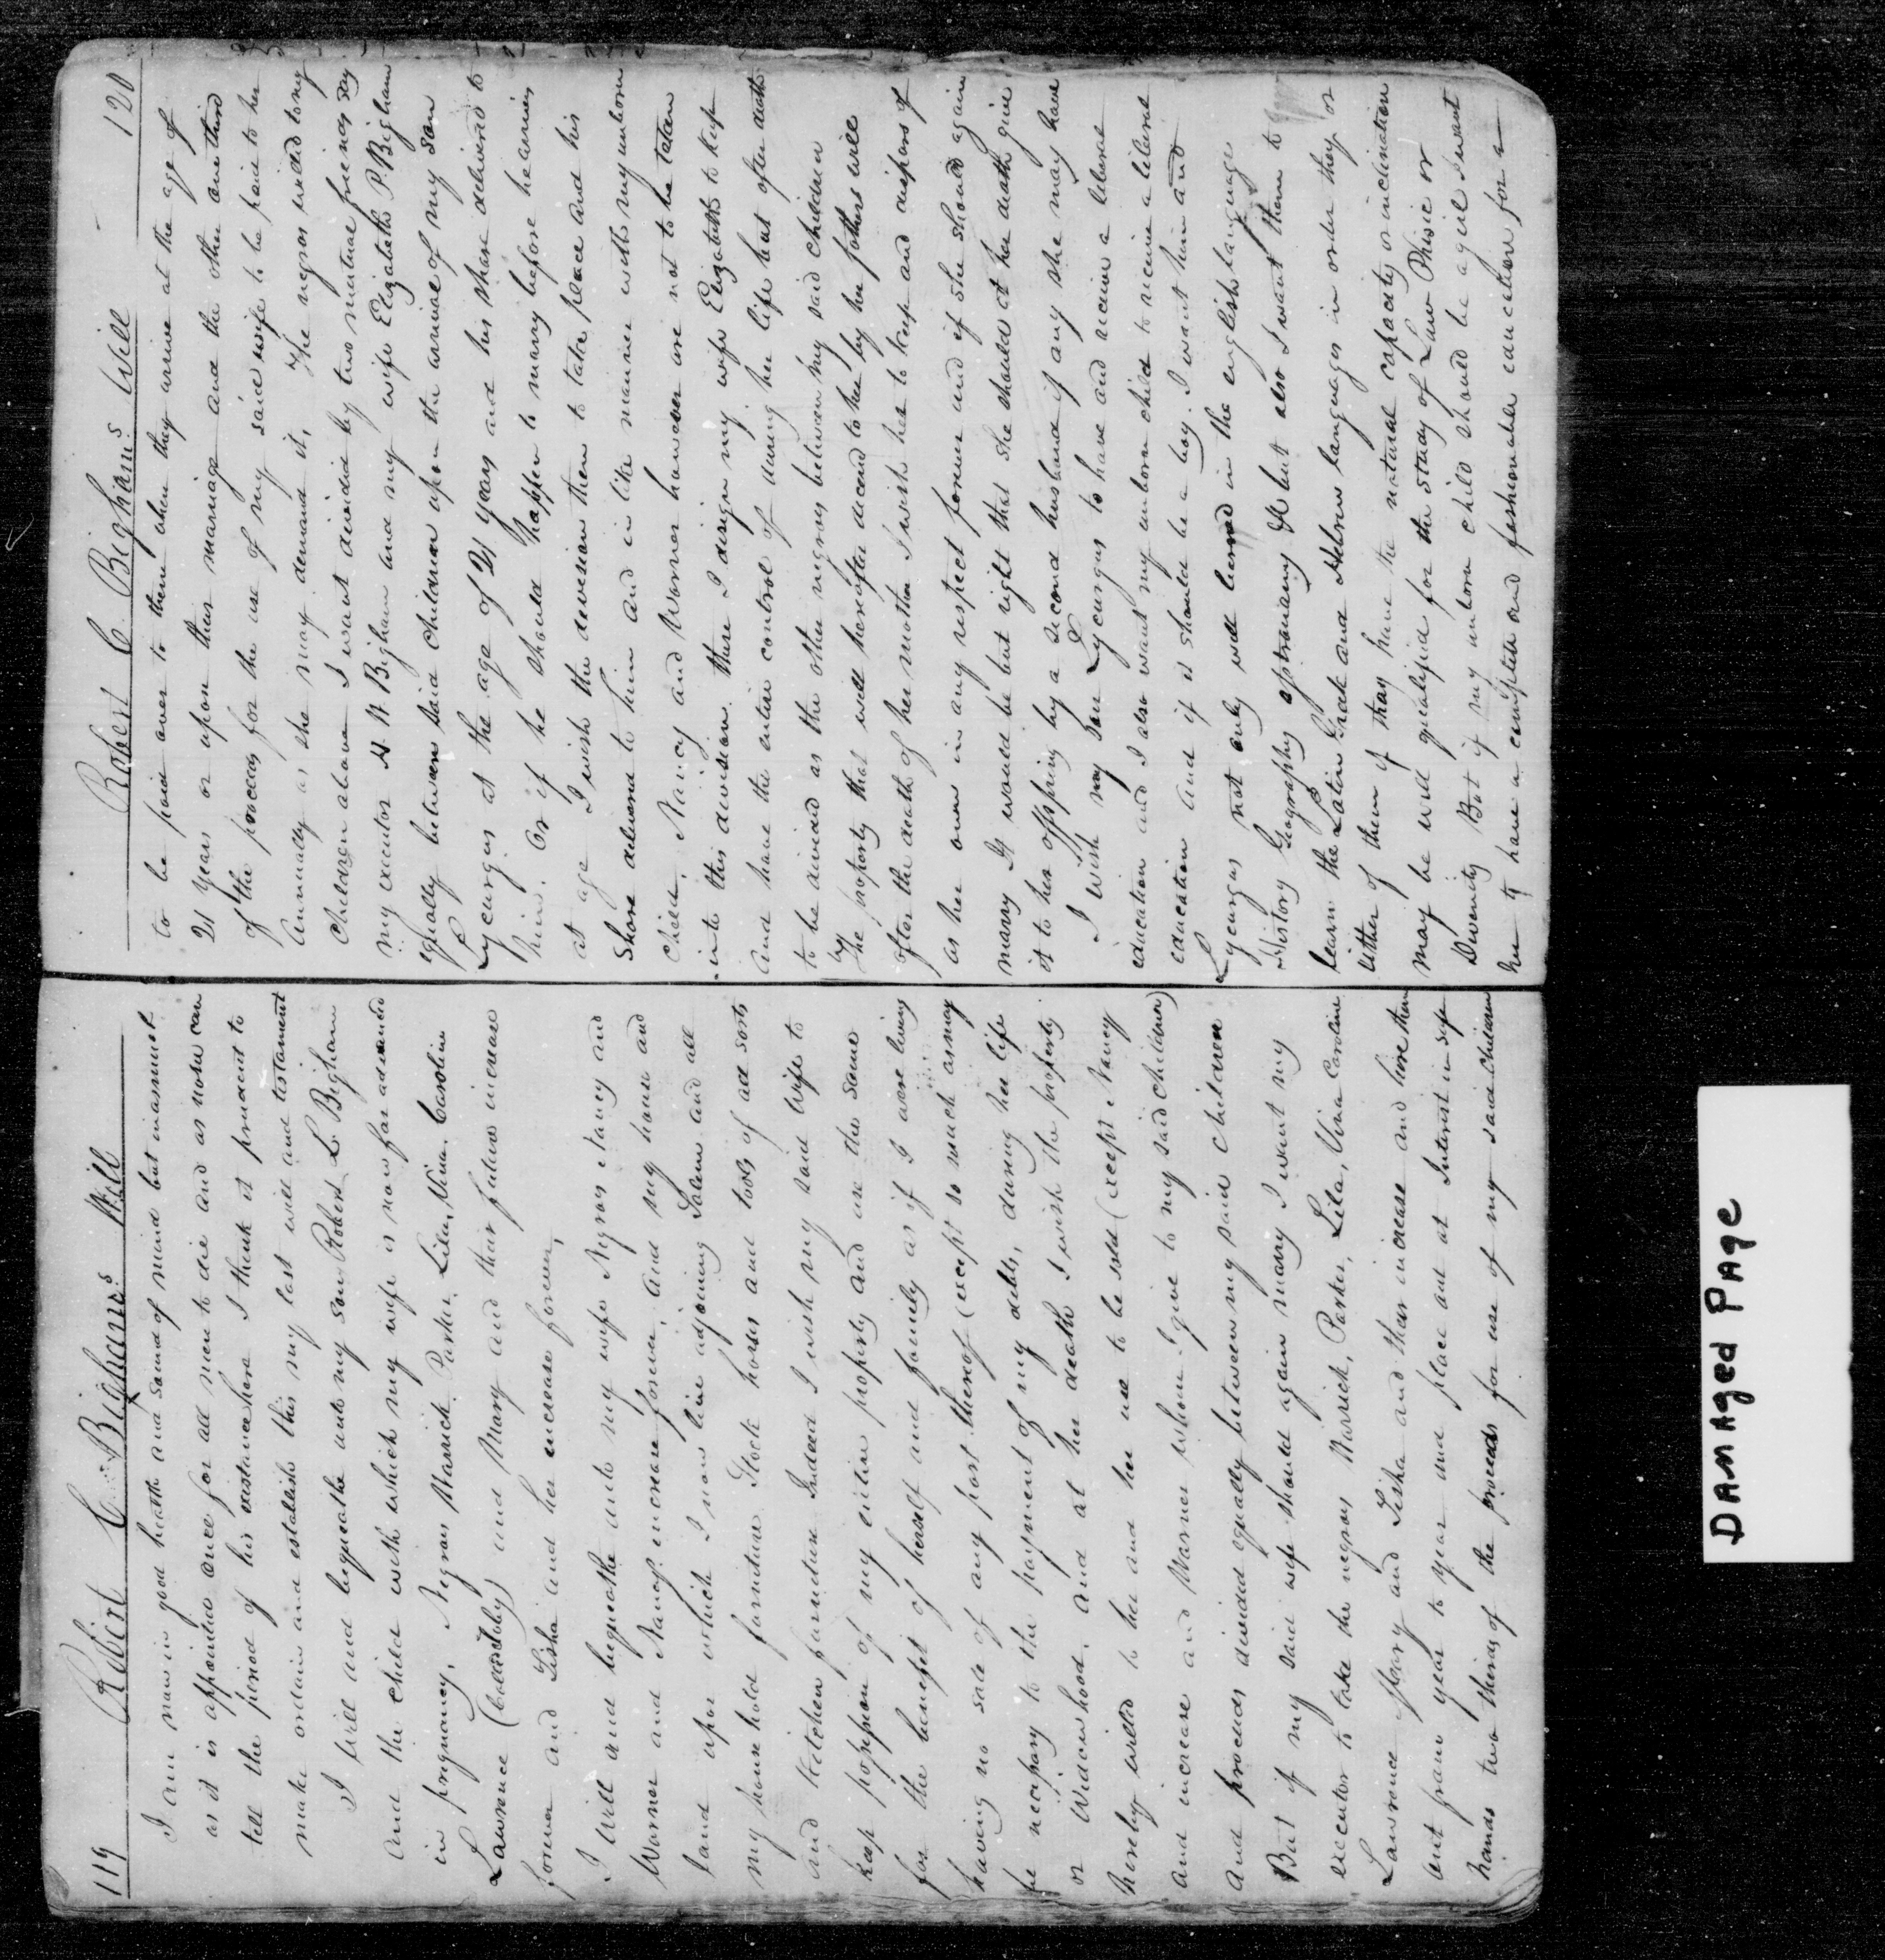 119 Robert C. Bighams Will
I am now in good health and sound of mind but inasmuch
as it is appointed once for all men to die and as none can
tell the period of his existance here I think it prudent to
make ordain and establish this my last will and testament
I will and bequeathe unto my son Robert L Bigham
and the child with which my wife is now far advanced
in pregnancy, Negroes Warrick Parker, Lila, Vina Caroline
Lawrence (Called Toby) and Mary and their future increase
forever and Tisha and her increase forever,
I will and bequeathe unto my wife Negroes Nancy and
Warner and Nancys increase forever, and my house and
land upon which I now live adjoining Salem and all
my household furniture Stock horses and tools of all sorts
and Kitchen furniture Indeed I wish my said wife to
keep possession of my entire property and use the same
for the benefit of herself and family as if I were living
having no sale of any part thereof (except so much as may
be necessary to the payment of my debts, during her life
or Widowhood, and at her death I wish the property
hereby willed to her and her use to be sold (except Nancy
and increase and Warner whom I give to my said children)
and proceeds divided equally between my said children
But if my said wife should again marry I want my
executor to take the negroes Warrick, Parker, Lila, Vina Caroline
Lawrence Mary and Tisha and their increase and hire them
out from year to year and place out at Interest in safe
hands two thirds of the proceeds for use of my said children
Robert C. Bighams Will 120
to be paid over to them when they arrive at the age of
21 years or upon their marriage and the other one third
of the proceeds for the use of my said wife to be paid to her
Annually as she may demand it, The negroes willed to my
Children above I want divided by two mutual friends say
my executor H W Bigham and my wife Elizabeth P. Bigham
equally between said children upon the arrival of my son
Lycurgus at the age of 21 years and his share delivered to
him. Or if he should happen to marry before he arrives
at age I wish the division then to take place and his
Share delivered to him and in like manner with my unborn
child, Nancy and Warner however are not to be taken
into this division. these I design my wife Elizabeth to keep
And have the entire control of during her life but after death
to be divided as the other negroes between my said children
The property that will hereafter decend to her by her fathers will
after the death of her mother I wish her to keep and dispose of
as her own in any respect forever and if she should again
marry It would be but right that she should at her death give
it to her offspring by a second husband if any she may have
I wish my son Lycurgus to have and receive a liberal
education and I also want my unborn child to receive a liberal
education And if it should be a boy. I want him and
Lycurgus not only well learned in the english language
History Geography Astronomy &c but also I want them to
learn the Latin Greek and Hebrew languages in order they or
either of them if they have the natural capacity or inclination
may be well qualified for the study of Law Phisic or
Divinity But if my unborn child should be a girl I want
her to have a complete and fashionable education for a
DAMAged PAge